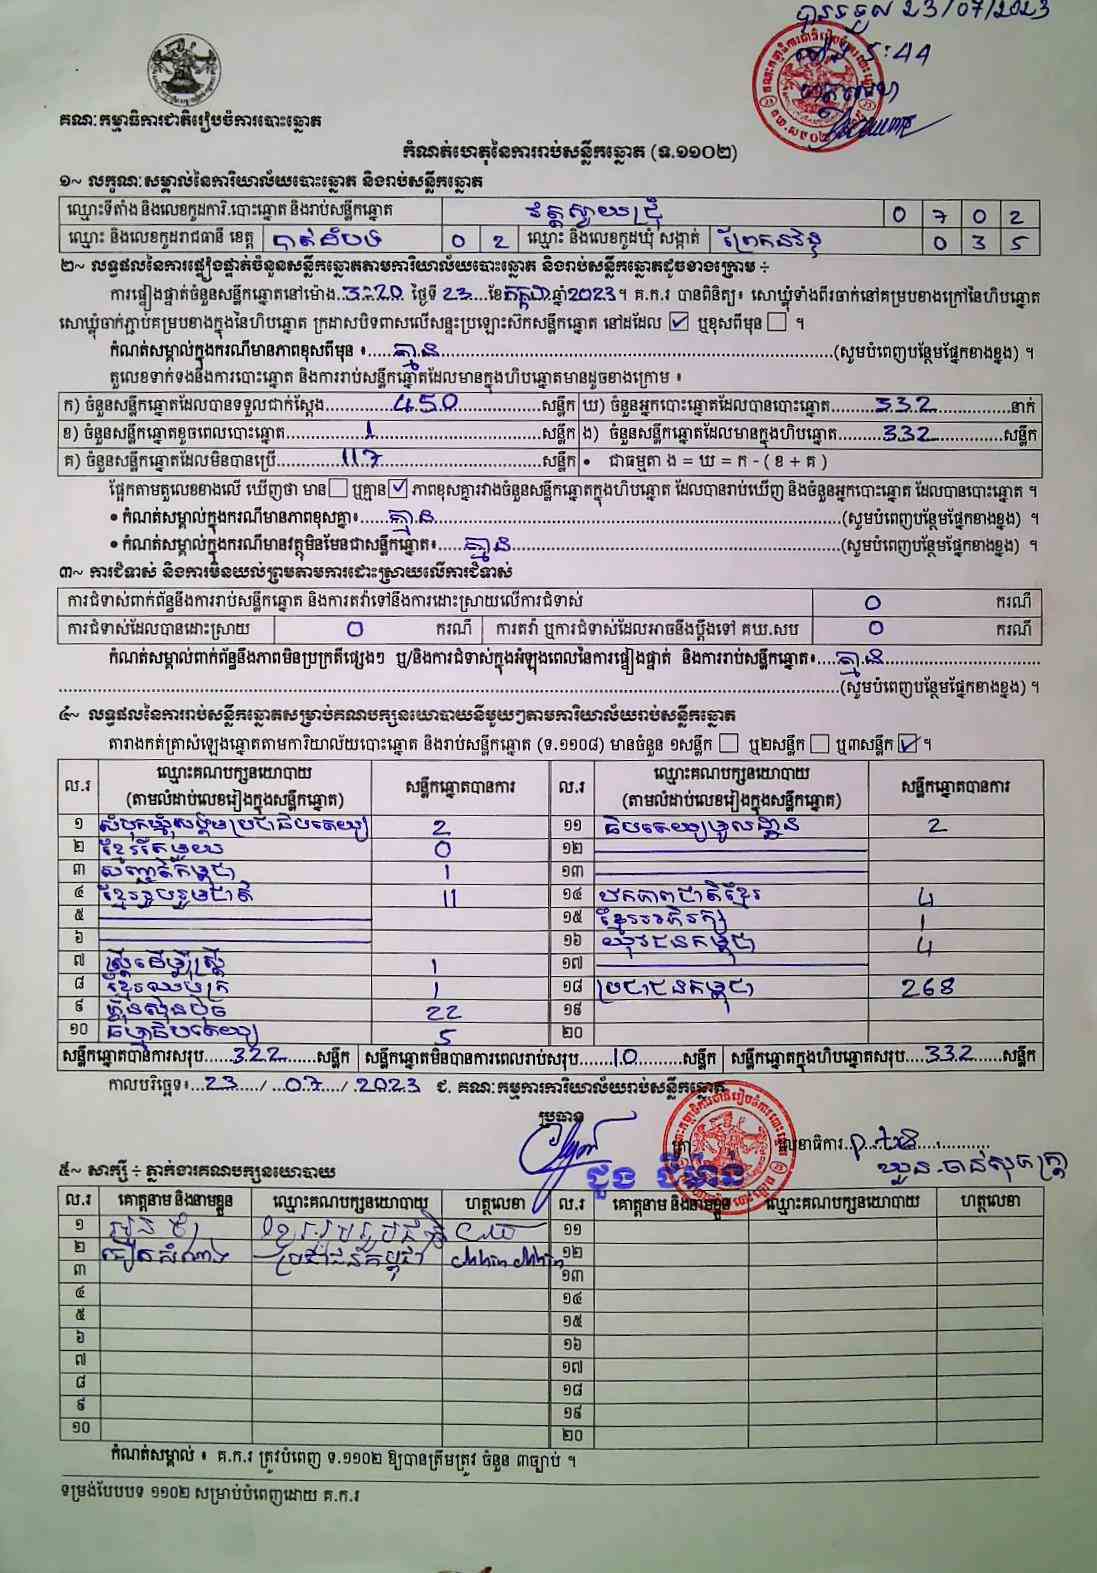 បានទទួល 23/07/2023
ម៉ោង 5:44
ហត្ថលេខា
គណៈកម្មាធិការជាតិរៀបចំការបោះឆ្នោត
កំណត់ហេតុនៃការរាប់សន្លឹកឆ្នោត (ទ.១១០២)
១~ លក្ខណៈសម្គាល់នៃការិយាល័យបោះឆ្នោត និងរាប់សន្លឹកឆ្នោត
ឈ្មោះទីតាំង និងលេខកូដការិ.បោះឆ្នោត និងរាប់សន្លឹកឆ្នោត វត្តស្វាយជ្រុំ 0 7 0 2
ឈ្មោះ និងលេខកូដរាជធានី ខេត្ត បាត់ដំបង 0 2 ឈ្មោះ និងលេខកូដឃុំ សង្កាត់ ព្រែកនរិន្ទ 0 3 5
២~ លទ្ធផលនៃការផ្ទៀងផ្ទាត់ចំនួនសន្លឹកឆ្នោតតាមការិយាល័យបោះឆ្នោត និងរាប់សន្លឹកឆ្នោតដូចខាងក្រោម ÷
ការផ្ទៀងផ្ទាត់ចំនួនសន្លឹកឆ្នោតនៅម៉ោង..3:20 ថ្ងៃទី 23...ខែកក្កដាឆ្នាំ2023។ គ.ក.រ បានពិនិត្យ៖ សោឃ្លុំទាំងពីរចាក់នៅគម្របខាងក្រៅនៃហិបឆ្នោត
សោឃ្លុំចាក់ភ្ជាប់គម្របខាងក្នុងនៃហិបឆ្នោត ក្រដាសបិទពាសលើសន្ទះប្រឡោះស៊កសន្លឹកឆ្នោត នៅដដែល ☑ ឬខុសពីមុន ☐ ។
កំណត់សម្គាល់ក្នុងករណីមានភាពខុសពីមុន ៖......គ្មាន......(សូមបំពេញបន្ថែមផ្នែកខាងខ្នង) ។
តួលេខទាក់ទងនឹងការបោះឆ្នោត និងការរាប់សន្លឹកឆ្នោតដែលមានក្នុងហិបឆ្នោតមានដូចខាងក្រោម ៖
ក) ចំនួនសន្លឹកឆ្នោតដែលបានទទួលជាក់ស្តែង......450......សន្លឹក ឃ) ចំនួនអ្នកបោះឆ្នោតដែលបានបោះឆ្នោត......332......នាក់
ខ) ចំនួនសន្លឹកឆ្នោតខូចពេលបោះឆ្នោត......1......សន្លឹក ង) ចំនួនសន្លឹកឆ្នោតដែលមានក្នុងហិបឆ្នោត......332......សន្លឹក
គ) ចំនួនសន្លឹកឆ្នោតដែលមិនបានប្រើ......117......សន្លឹក • ជាធម្មតា ង = ឃ = ក - ( ខ + គ )
ផ្អែកតាមតួលេខខាងលើ ឃើញថា មាន ☐ ឬគ្មាន ☑ ភាពខុសគ្នារវាងចំនួនសន្លឹកឆ្នោតក្នុងហិបឆ្នោត ដែលបានរាប់ឃើញ និងចំនួនអ្នកបោះឆ្នោត ដែលបានបោះឆ្នោត ។
• កំណត់សម្គាល់ក្នុងករណីមានភាពខុសគ្នា៖......គ្មាន......(សូមបំពេញបន្ថែមផ្នែកខាងខ្នង) ។
• កំណត់សម្គាល់ក្នុងករណីមានវត្ថុមិនមែនជាសន្លឹកឆ្នោត៖......គ្មាន......(សូមបំពេញបន្ថែមផ្នែកខាងខ្នង) ។
៣~ ការជំទាស់ និងការមិនយល់ព្រមតាមការដោះស្រាយលើការជំទាស់
ការជំទាស់ពាក់ព័ន្ធនឹងការរាប់សន្លឹកឆ្នោត និងការតវ៉ាទៅនឹងការដោះស្រាយលើការជំទាស់ 0 ករណី
ការជំទាស់ដែលបានដោះស្រាយ 0 ករណី ការតវ៉ា ឬការជំទាស់ដែលអាចនឹងប្តឹងទៅ គឃ.សប 0 ករណី
កំណត់សម្គាល់ពាក់ព័ន្ធនឹងភាពមិនប្រក្រតីផ្សេងៗ ឬ/និងការជំទាស់ក្នុងអំឡុងពេលនៃការផ្ទៀងផ្ទាត់ និងការរាប់សន្លឹកឆ្នោត៖....គ្មាន......
......(សូមបំពេញបន្ថែមផ្នែកខាងខ្នង) ។
៤~ លទ្ធផលនៃការរាប់សន្លឹកឆ្នោតសម្រាប់គណបក្សនយោបាយនីមួយៗតាមការិយាល័យរាប់សន្លឹកឆ្នោត
តារាងកត់ត្រាសំឡេងឆ្នោតតាមការិយាល័យបោះឆ្នោត និងរាប់សន្លឹកឆ្នោត (ទ.១១០៨) មានចំនួន ១សន្លឹក ☐ ឬ២សន្លឹក ☐ ឬ៣សន្លឹក ☑ ។
ល.រ ឈ្មោះគណបក្សនយោបាយ (តាមលំដាប់លេខរៀងក្នុងសន្លឹកឆ្នោត) សន្លឹកឆ្នោតបានការ ល.រ ឈ្មោះគណបក្សនយោបាយ (តាមលំដាប់លេខរៀងក្នុងសន្លឹកឆ្នោត) សន្លឹកឆ្នោតបានការ
១ សំបុកឃ្មុំសង្គមប្រជាធិបតេយ្យ 2 ១១ ធិបតេយ្យមូលដ្ឋាន 2
២ ខ្មែររីកចម្រើន 0 ១២
៣ សញ្ជាតិកម្ពុជា 1 ១៣
៤ ខ្មែររួបរួមជាតិ 11 ១៤ ឯកភាពជាតិខ្មែរ 4
៥ ១៥ ខ្មែរអភិរក្ស 1
៦ ១៦ យុវជនកម្ពុជា 4
៧ ស្ត្រីដើម្បីស្ត្រី 1 ១៧
៨ ខ្មែរឈប់ក្រ 1 ១៨ ប្រជាជនកម្ពុជា 268
៩ ហ្វ៊ុនស៊ិនប៉ិច 22 ១៩
១០ ធម្មាធិបតេយ្យ 5 ២០
សន្លឹកឆ្នោតបានការសរុប......322......សន្លឹក សន្លឹកឆ្នោតមិនបានការពេលរាប់សរុប......10......សន្លឹក សន្លឹកឆ្នោតក្នុងហិបឆ្នោតសរុប...332......សន្លឹក
កាលបរិច្ឆេទ៖...23..../...07..../ 2023 ជ. គណៈកម្មការការិយាល័យរាប់សន្លឹកឆ្នោត
ប្រធាន
លេខាធិការ
៥~ សាក្សី ÷ ភ្នាក់ងារគណបក្សនយោបាយ
ល.រ គោត្តនាម និងនាមខ្លួន ឈ្មោះគណបក្សនយោបាយ ហត្ថលេខា ល.រ គោត្តនាម និងនាមខ្លួន ឈ្មោះគណបក្សនយោបាយ ហត្ថលេខា
១ ខ្មែររួបរួមជាតិ ១១
២ ប្រជាជនកម្ពុជា ១២
៣ ១៣
៤ ១៤
៥ ១៥
៦ ១៦
៧ ១៧
៨ ១៨
៩ ១៩
១០ ២០
កំណត់សម្គាល់ ៖ គ.ក.រ ត្រូវបំពេញ ទ.១១០២ ឱ្យបានត្រឹមត្រូវ ចំនួន ៣ច្បាប់ ។
ទម្រង់បែបបទ ១១០២ សម្រាប់បំពេញដោយ គ.ក.រ